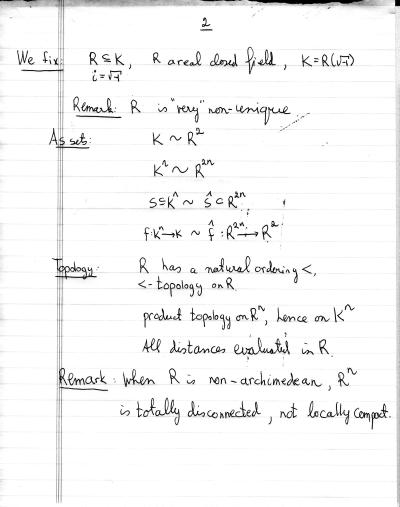 2
We fix: R ⊆ K, R a real closed field, K = R(√-1)
i = √-1
Remark: R is "very" non-unique
As sets: K ~ R²
Kⁿ ~ R²ⁿ
S ⊆ Kⁿ ~ Ŝ ⊂ R²ⁿ
f: Kⁿ → K ~ f̂ : R²ⁿ → R²
Topology: R has a natural ordering <,
<- topology on R
product topology on Rⁿ, hence on Kⁿ
All distances evaluated in R.
Remark: when R is non-archimedean, Rⁿ
is totally disconnected, not locally compact.